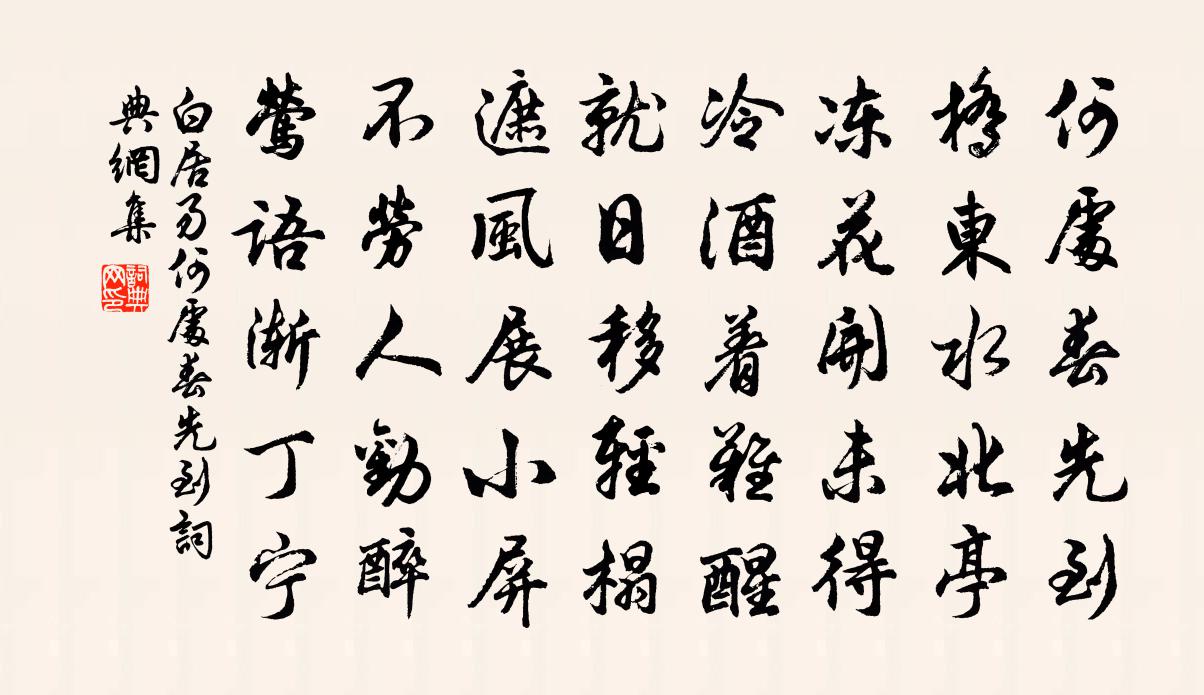 何處春先到
橋東水北亭
凍花開未得
冷酒着難醒
就日移輕榻
遮風展小屏
不勞人勸醉
鶯語漸丁宁
白居易何處春先到詞
典網集
詞典
网印